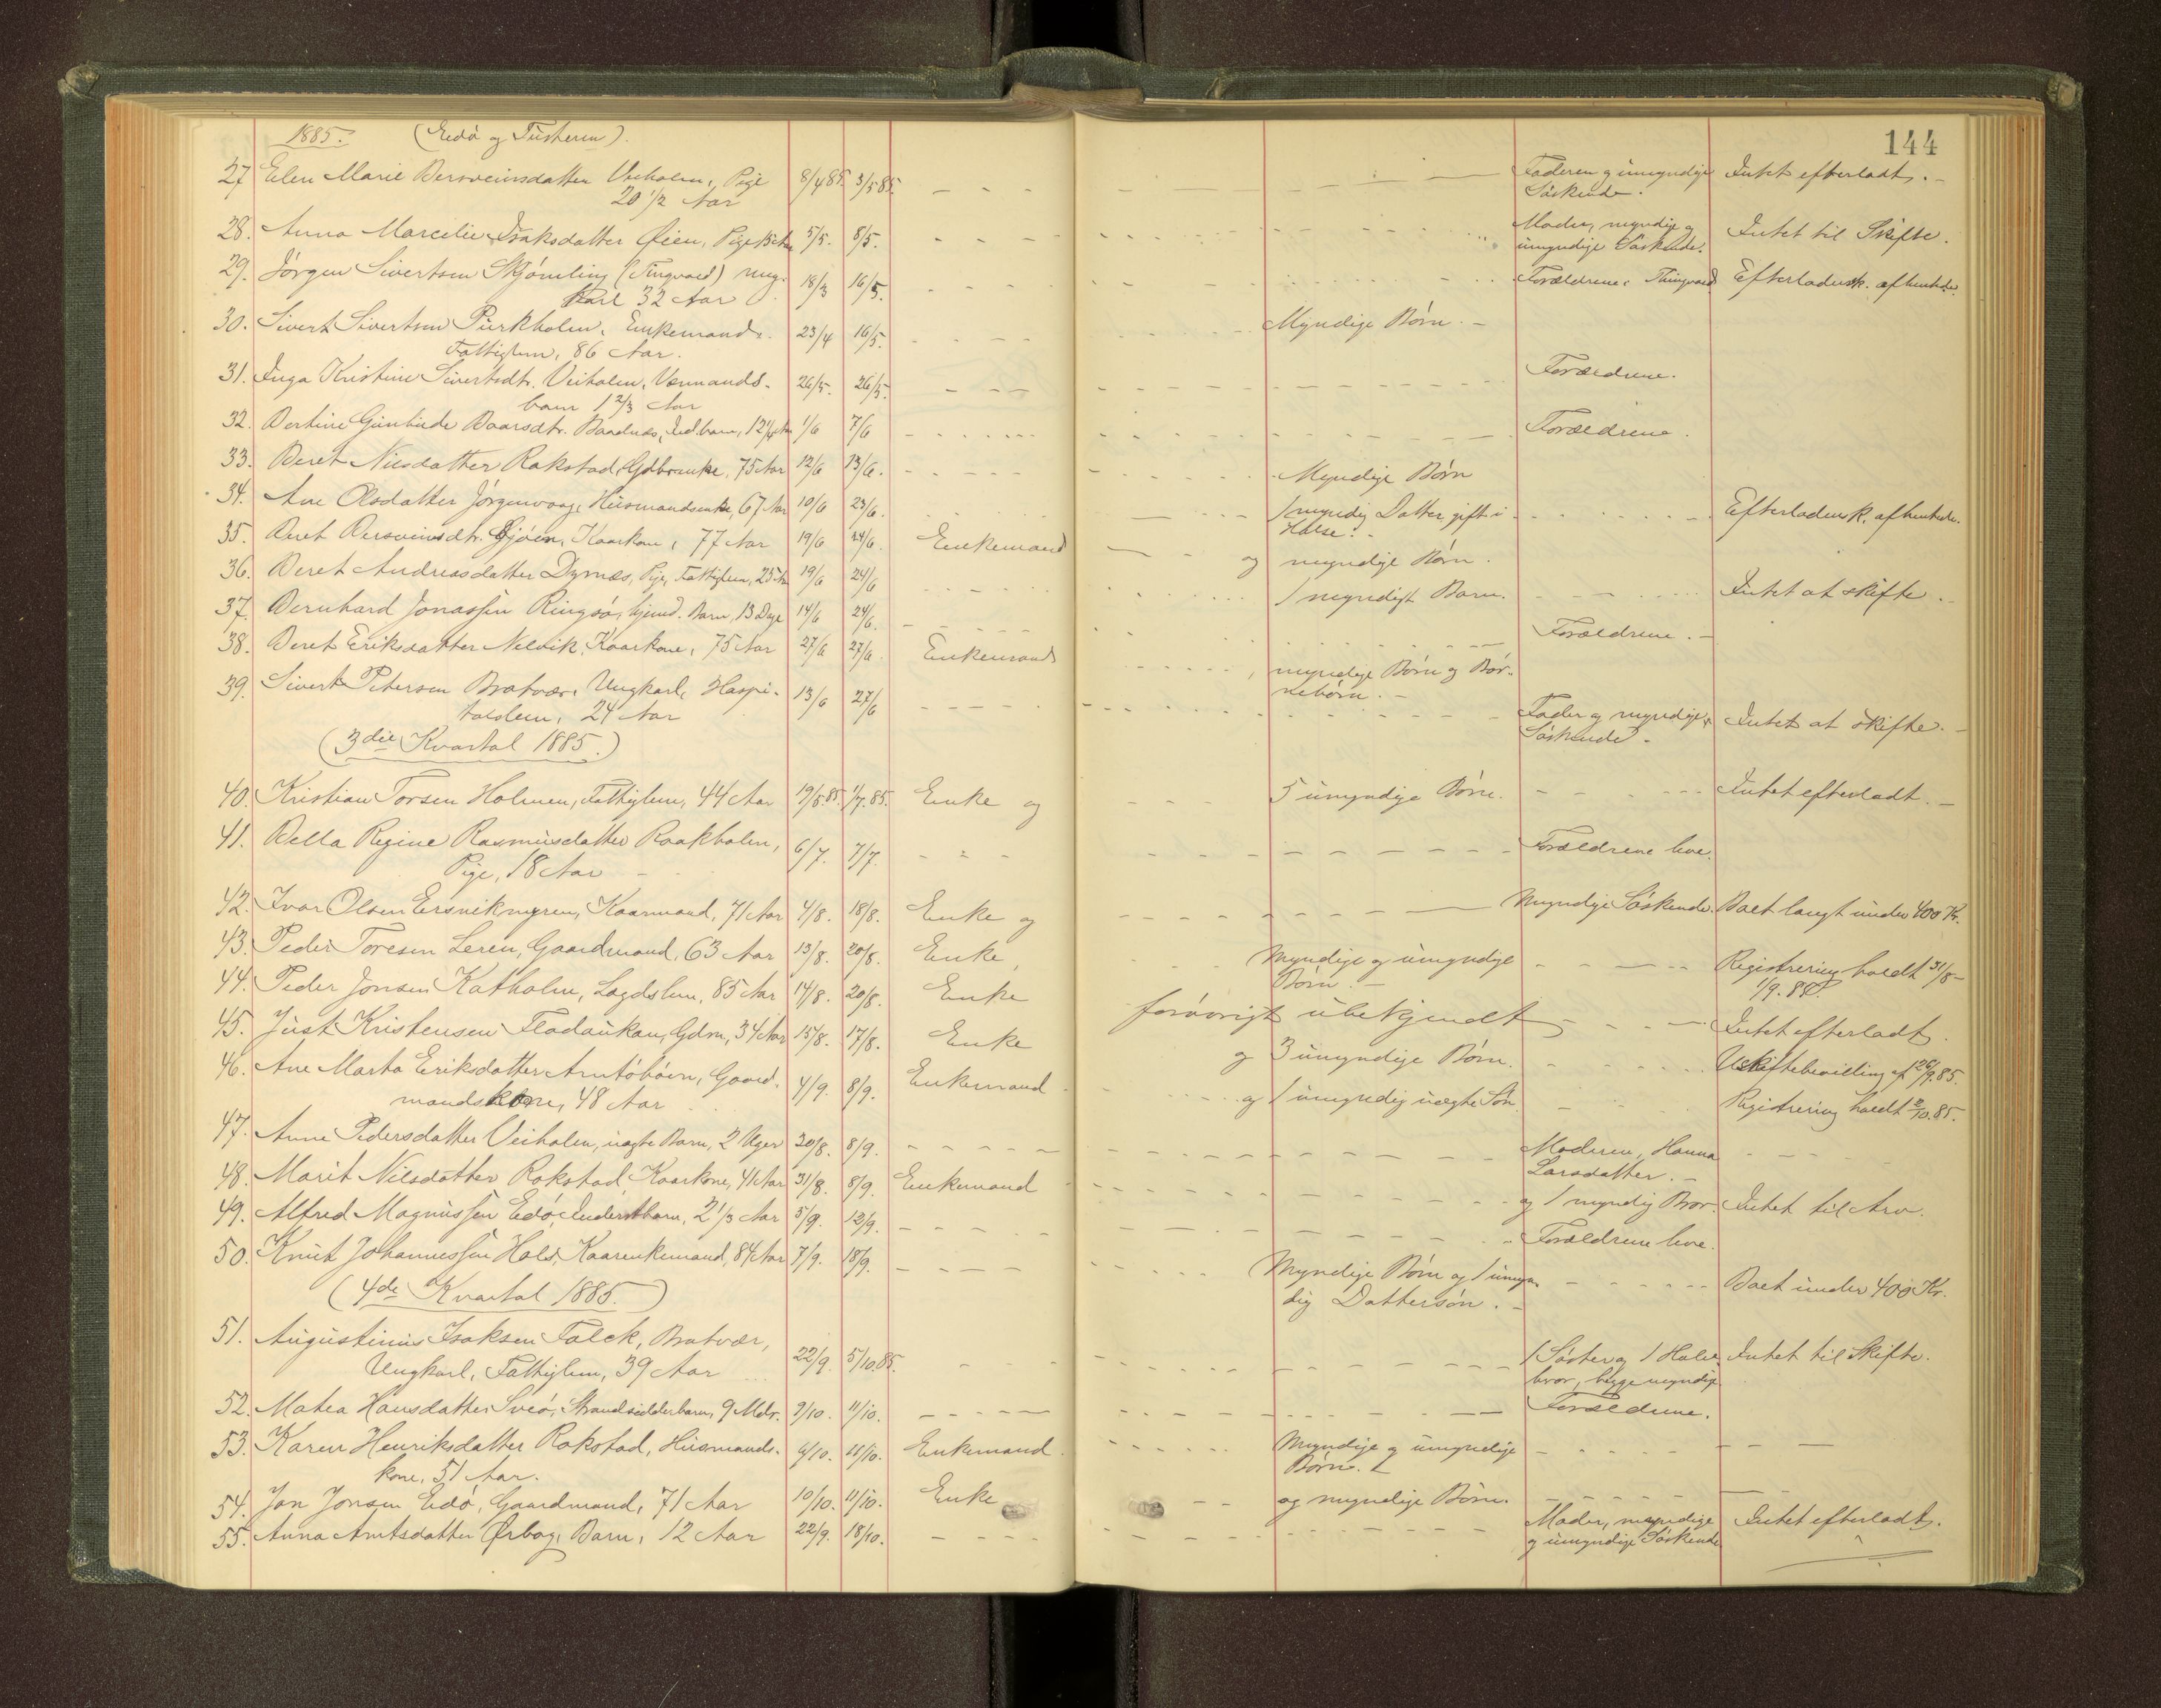 144
1885. (Edø og Tusteren).
27 Elen Marie Bersveinsdatter Veiholm, Pige 8/4 85. 3/5 85. Faderen og umyndige Intet efterladt.
20 1/2 Aar Søskende.
28. Anna Marcelie Isaksdatter Øien, Pige 5/5. 8/5. Moder, myndige og Intet til Skifte.
umyndige Søskende.
29. Jørgen Sivertsen Skjømling (Tingvold) ung- 18/3 16/5. Forældrene, Thingvold Efterladensk. afhentede.
karl 32 Aar
30. Sivert Sivertsen Purkholm, Enkemand, 23/4 16/5. Myndige Børn.
Fattiglem, 86 Aar.
31. Inga Kristine Sivertsdtr. Veiholm, 26/5. 26/5. Forældrene.
barn 1 2/3 Aar
32. Bertine Baarsdtr. Baadnes, Indbarn, 12 1/4 Aar 1/6 7/6 Forældrene.
33. Beret Nilsdatter Rokstad, Gdbrenke, 75 Aar 12/6 13/6. Myndige Børn
34. Ane Olsdatter Jørgenvaag, Husmandsenke, 67 Aar 10/6 23/6. 1 myndig Datter gift i Efterladensk. afhentede.
Halse.
35. Beret Bersveinsdtr. Gjøen, Kaarkone, 77 Aar 19/6 24/6. Enkemand og myndige Børn.
36. Beret Andreasdatter Dyrnæs, Pige, Fattiglem, 25 Aar 19/6 24/6 1 myndigt Barn. Intet at skifte.
37. Bernhard Jonassen Ringsø, Barn, 13 Dage 14/6 24/6. Forældrene.
38. Beret Eriksdatter Nelvik, Kaarkone, 75 Aar 27/6 27/6. Enkemand, myndige Børn og Bør-
nebørn.
39. Sivert Petersen Bratvær, Ungkarl, Hospi- 13/6 27/6 Fader og myndige Intet at skifte.
talslem, 24 Aar Søskende.
(3die Kvartal 1885.)
40. Kristian Torsen Holmen, Fattiglem, 44 Aar 19/5.85. 1/7.85. Enke og 5 umyndige Børn. Intet efterladt.
41. Bella Regine Rasmusdatter Raakholm, 6/7. 7/7. Forældrene leve.
Pige, 18 Aar
42. Ivar Olsen Ersvikmyren, Kaarmand, 71 Aar 4/8. 18/8. Enke og Myndige Søskende. Boet langt under 400 Kr.
43. Peder Toresen Leren, Gaardmand, 63 Aar 13/8. 20/8. Enke, Myndige og umyndige Registrering holdt 31/8-
Børn. 1/9. 85.
44. Peder Jonsen Katholm, Lægdslem, 85 Aar 14/8. 20/8. Enke forøvrigt ubekjendt Intet efterladt.
45. Just Kristensen Flodaukan, Gdm, 34 Aar 15/8. 17/8. Enke og 3 umyndige Børn. Uskiftebevilling af 26/9.85.
46. Ane Marta Eriksdatter Arntøbøen, Gaard- 4/9. 8/9. Enkemand og 1 umyndig uægte Søn. Registrering holdt 2/10.85.
mandskone, 48 Aar
47. Anne Pedersdatter Veiholm, uægte Barn, 2 Uger 30/8. 8/9. Moderen, Hanna
Larsdatter.
48. Marit Nilsdatter Rokstad, Kaarkone, 41 Aar 31/8. 8/9. Enkemand og 1 myndig Bror. Intet til Arv.
49. Alfred Magnussen Edø, Inderstbarn, 2 1/3 Aar 5/9. 13/9. Forældrene leve.
50. Knut Johannessen Hold, Kaarenkemand, 84 Aar 7/9. 18/9. Myndige Børn og 1 umyn- Boet under 400 Kr.
dig Dattersøn.
(4de Kvartal 1885.)
51. Augustinus Isaksen Falck, Bratvær, 22/9. 5/10.85. 1 Søster og 1 Halv- Intet til Skifte.
Ungkarl, Fattiglem, 39 Aar bror, begge myndige
52. Matea Hansdatter Sveø, Strandsidderbarn, 9 Mdr. 9/10. 11/10. Forældrene.
53. Karen Henriksdatter Rokstad, Husmands- 4/10. 11/10. Enkemand. Myndige og umyndige
kone, 51 Aar. Børn.
54. Jon Jonsen Edø, Gaardmand, 71 Aar 10/10. 11/10. Enke og myndige Børn.
55. Anna Arntsdatter Ørbog, Barn, 12 Aar 22/9. 18/10. Moder, myndige Intet efterladt.
og umyndige Søskende